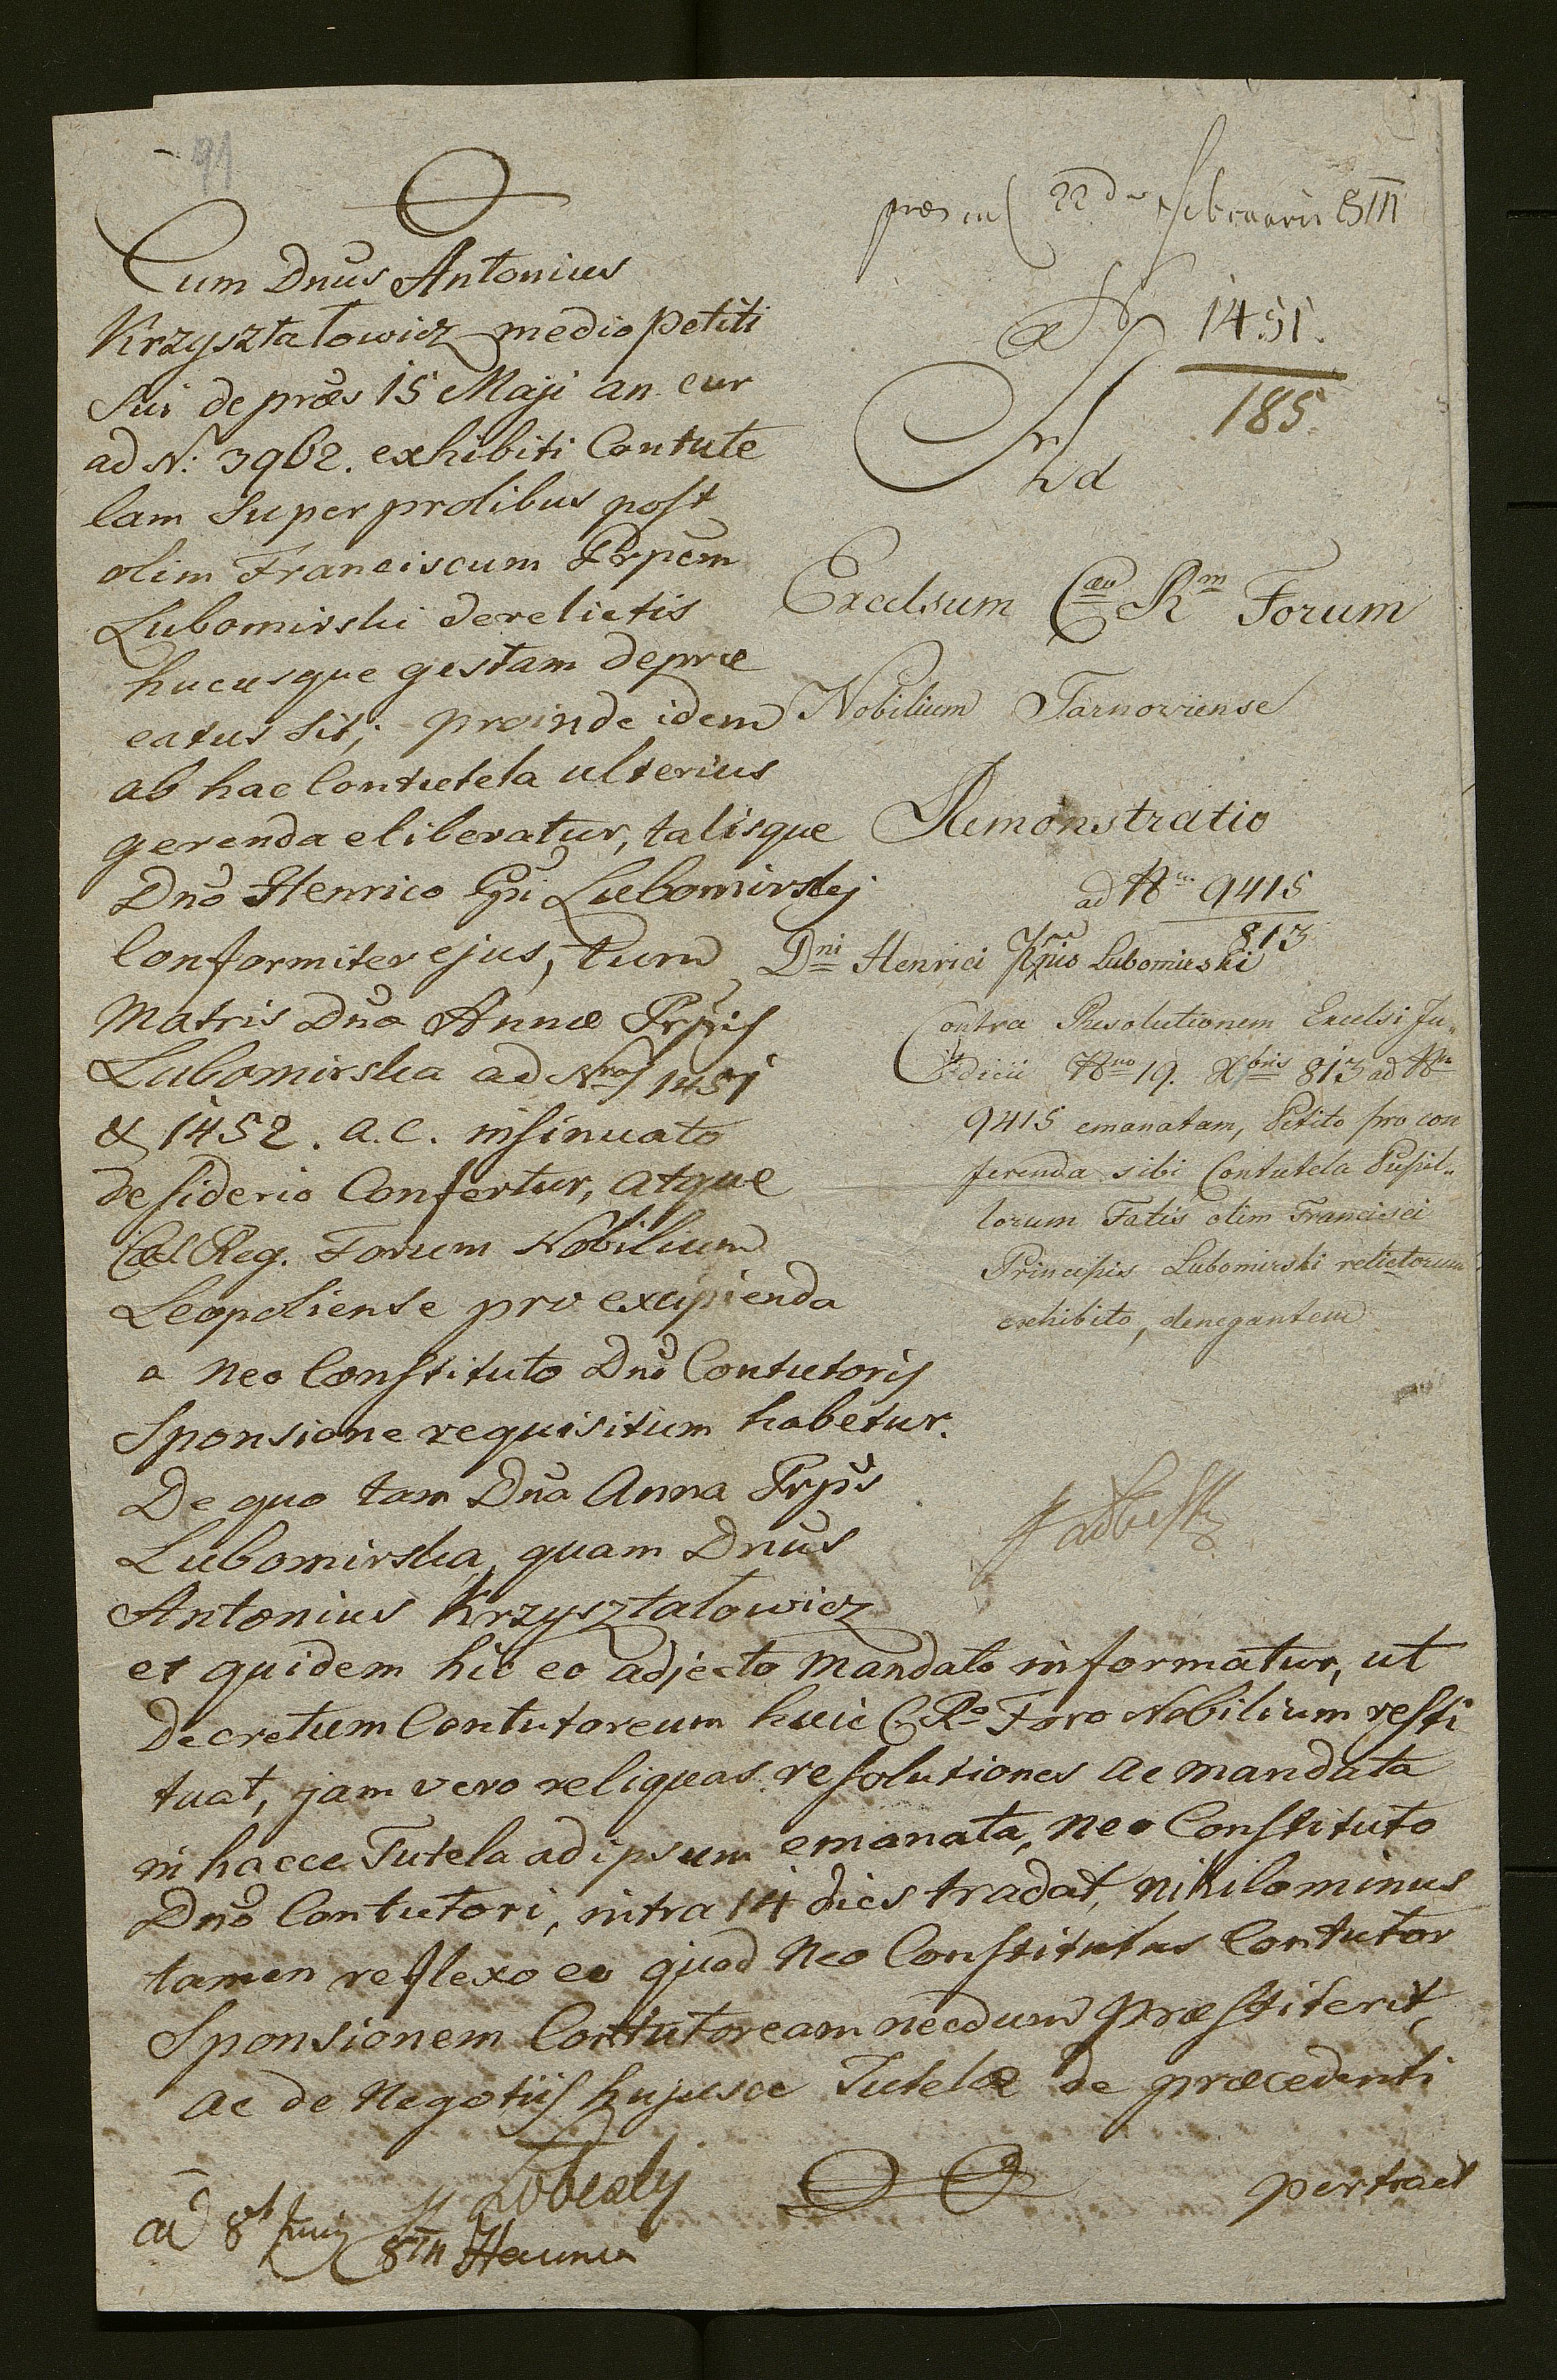 91
Cum Dnus Antonius
Krzysztalowicz medio petiti
sui de præs 15 Maji an. cur
ad N: 3962. exhibiti Contute
lam super prolibus post
olim Franciscum Prpem
Lubomirski derelictis
hucusque gestam depræ
catus sit; proinde idem
ab hac Contutela ulterius
gerenda eliberatur, talisque
Dno Henrico Ppi Lubomirskj
Conformiter ejus, tum
Matris Dnæ Annæ Prpis
Lubomirska ad Nros 1451
& 1452. a.c. insinuato
desiderio Confertur, atque
Cæs. Reg. Forum Nobilium
Leopoliense pro excipienda
a neo Constituto Dno Contutoris
Sponsione requisitum habetur.
De quo tam Dna Anna Prpis
Lubomirska, quam Dnus
Antonius Krzysztalowicz
et quidem hic eo adjecto mandato informatur, ut
Decretum Contutoreum huic C. Ro. Foro Nobilium resti
tuat, jam vero reliquas resolutiones ac mandata
in hacce Tutela ad ipsum emanata, neo Constituto
Dno Contutori, intra 14 dies tradat, nihilominus
tamen reflexo eo quod neo Constitutus Contutor
Sponsionem Contutoream necdum præstiterit,
ac de negotiis hujusce Tutelæ de præcedenti
pertract
præs 22da Februarii 814
ad N 1451.
185.
Ad
Excelsum Cæo Rm Forum
Nobilium Tarnoviense
Remonstratio
ad Nm 9415
813
Dni Henrici Ppis Lubomirski
Contra Resolutionem Excelsi Ju„
dicii Dno 19. Xbris 813 ad Nm
9415 emanatam, Petito pro con
ferenda sibi Contutela Pupil„
lorum Fatis olim Francisci
Principis Lubomirski relictorum
exhibito, denegantem
8 Junij 814